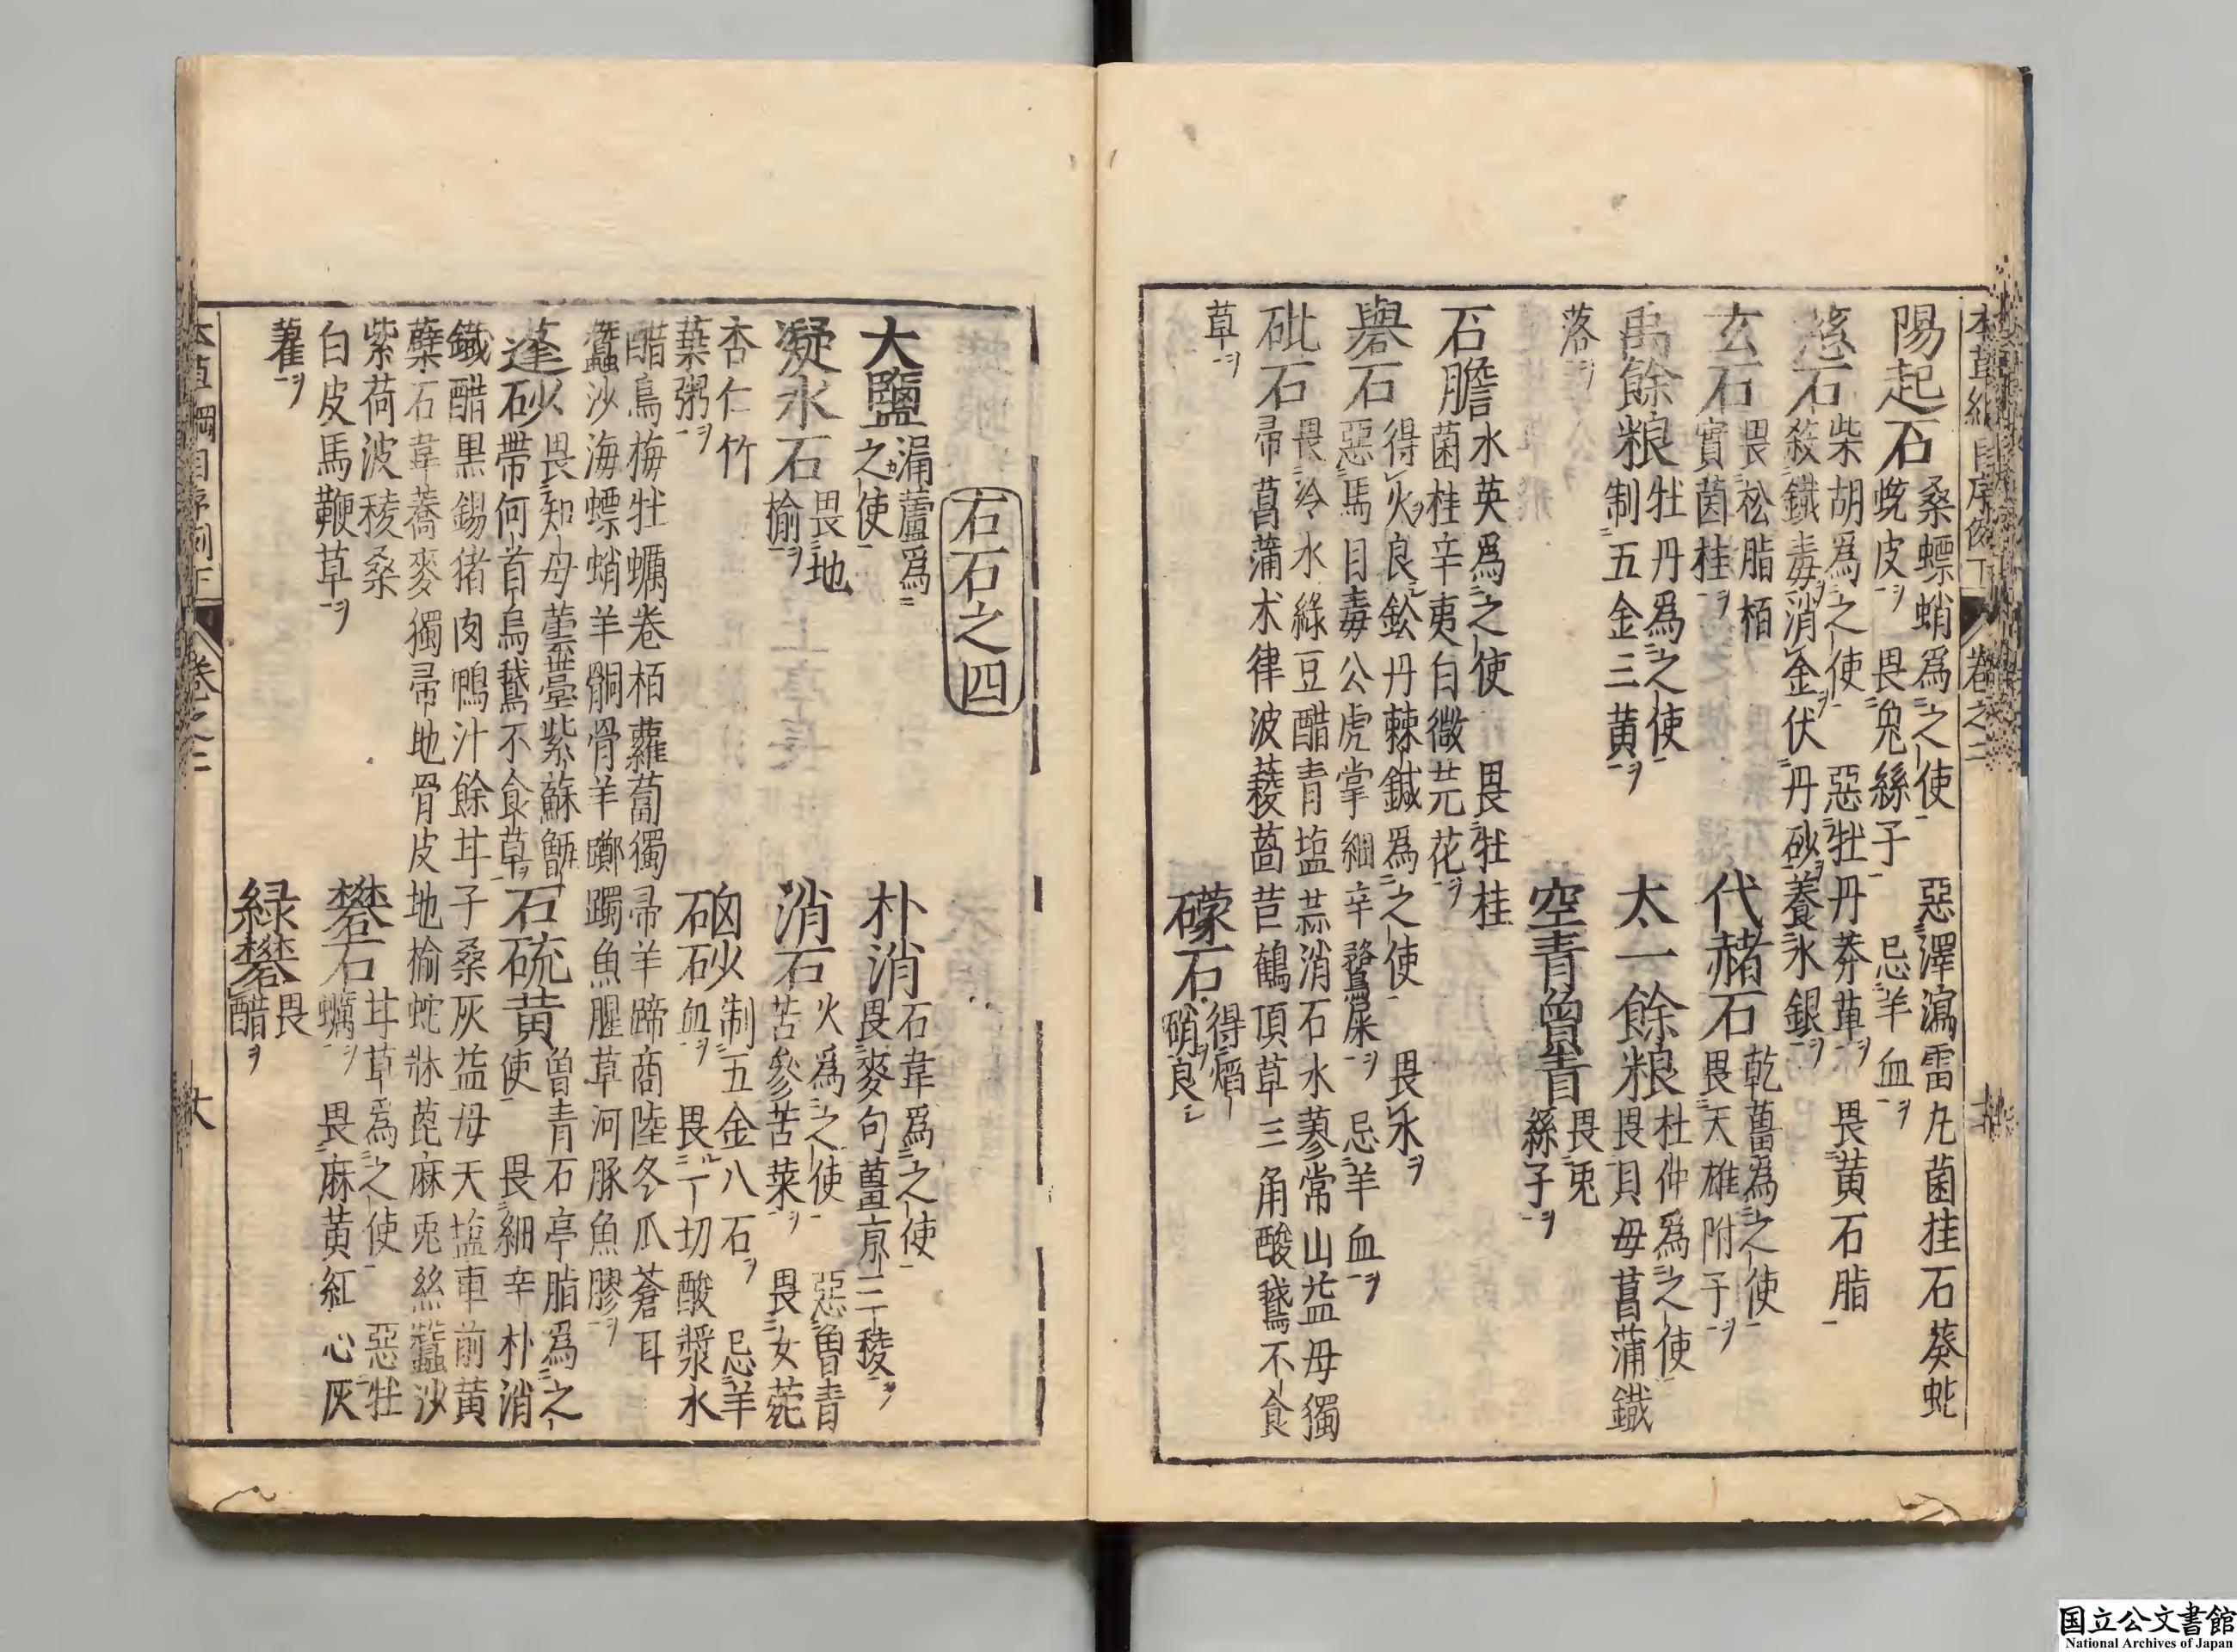 本草綱目序例下 卷之二
陽起石 桑螵蛸爲之使 惡澤瀉雷丸菌桂石葵蛇
蛻皮ヲ 畏兔絲子 忌羊血ヲ
慈石 柴胡爲之使 惡牡丹莽草 畏黃石脂
殺鐵毒消金伏丹砂養水銀ヲ
玄石 畏松脂栢
實菌桂ヲ
代赭石 乾薑爲之使
畏天雄附子ヲ
禹餘粮 牡丹爲之使
制五金三黃ヲ
太一餘粮 杜仲爲之使
畏貝母菖蒲鐵
落ヲ
空青曾青 畏兎
絲子ヲ
石膽 水英爲之使 畏牡桂
菌桂辛夷白微芫花ヲ
礜石 得火良 鈆丹棘鍼爲之使 畏水ヲ
惡馬目毒公虎掌細辛鶩屎ヲ 忌羊血ヲ
砒石 畏冷水綠豆醋青塩蒜消石水蓼常山益母獨
帚菖蒲木律波薐萵苣鶴頂草三角酸鵝不食
草ヲ
礞石 得熖
硝良シ
石石之四
大鹽 漏蘆爲
之使
朴消 石韋爲之使
畏麥句薑京三稜ヲ
凝水石 畏地
榆ヲ
消石 火爲之使 惡曾青
苦參苦菜ヲ 畏女菀
杏仁竹
葉粥ヲ
硇砂 制五金八石ヲ 忌羊
血ヲ 畏一切酸漿水
醋烏梅牡蠣卷栢蘿蔔獨帚羊蹄商陸冬瓜蒼耳
蠶沙海螵蛸羊䏡骨羊躑躅魚腥草河豚魚膠ヲ
蓬砂 畏知母蕓薹紫蘇甑
帶何首烏鵝不食草ヲ
石硫黃 曾青石亭脂爲之
使 畏細辛朴消
鐵醋黒錫猪肉鴨汁餘甘子桑灰益母天塩車前黃
蘗石韋蕎麥獨帚地骨皮地榆蛇牀蓖麻兎絲蠶沙
紫荷波稜桑
白皮馬鞭草ヲ
礬石 甘草爲之使 惡牡
蠣ヲ 畏麻黃紅心灰
藋ヲ
綠礬 畏
醋ヲ
本草綱目序例下 卷之二
国立公文書館
National Archives of Japan